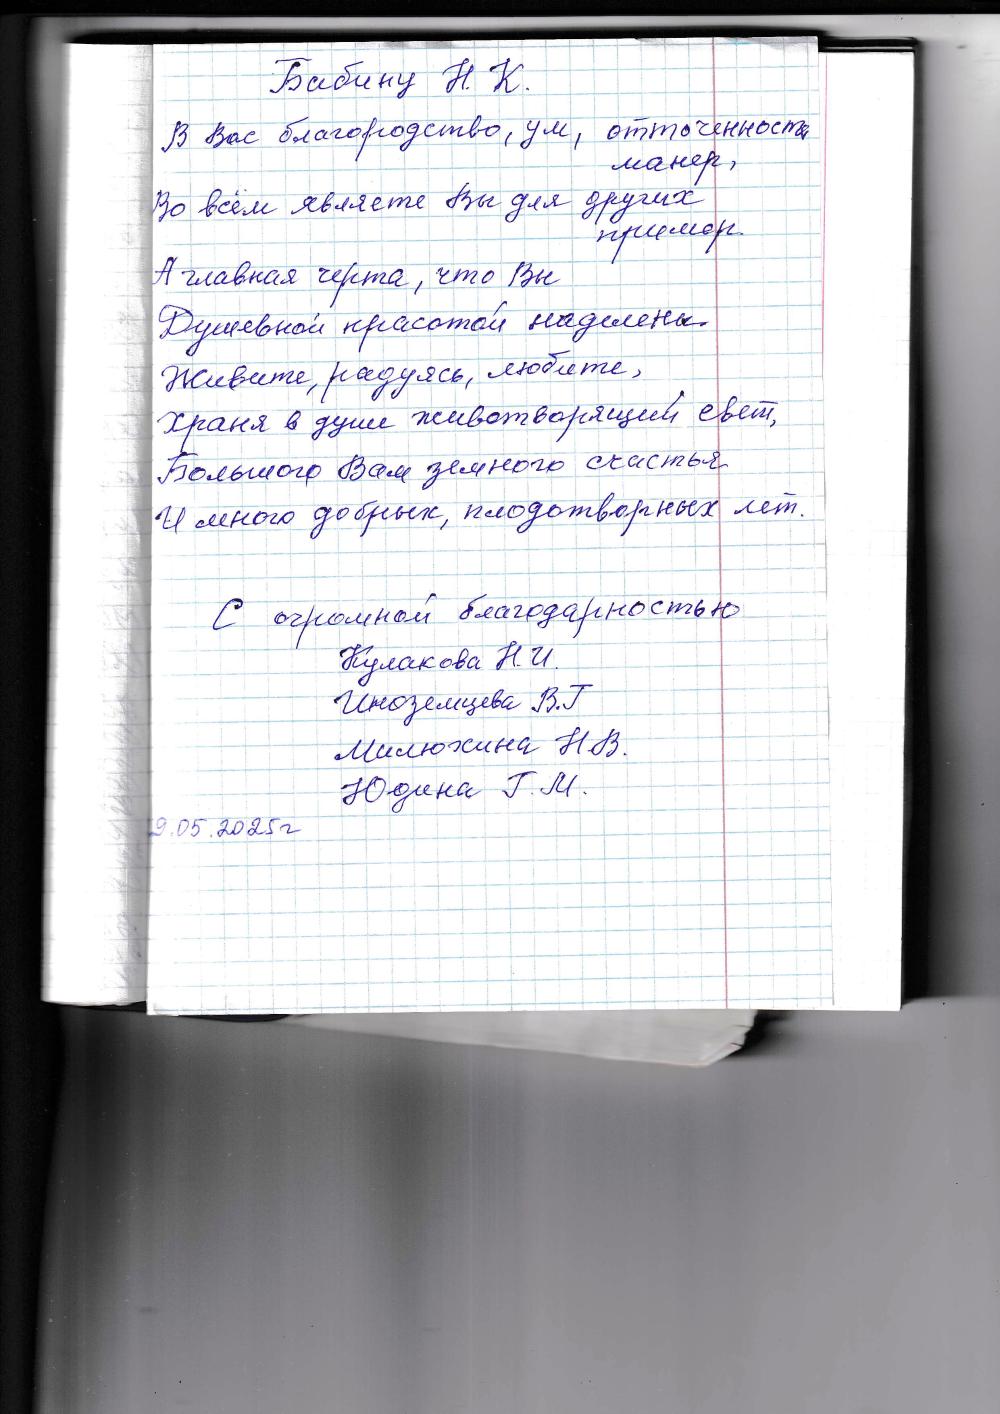 Бабину Н. К.
В Вас благородство, ум, отточенность
манер,
Во всём являете Вы для других
пример.
А главная черта, что Вы
Душевной красотой наделены.
Живите, радуясь, любите,
Храня в душе животворящий свет,
Большого Вам земного счастья
И много добрых, плодотворных лет.
С огромной благодарностью
Кулакова Н.И.
Иноземцева В.Г
Милюхина Н.В.
Юдина Г.М.
9.05.2025г